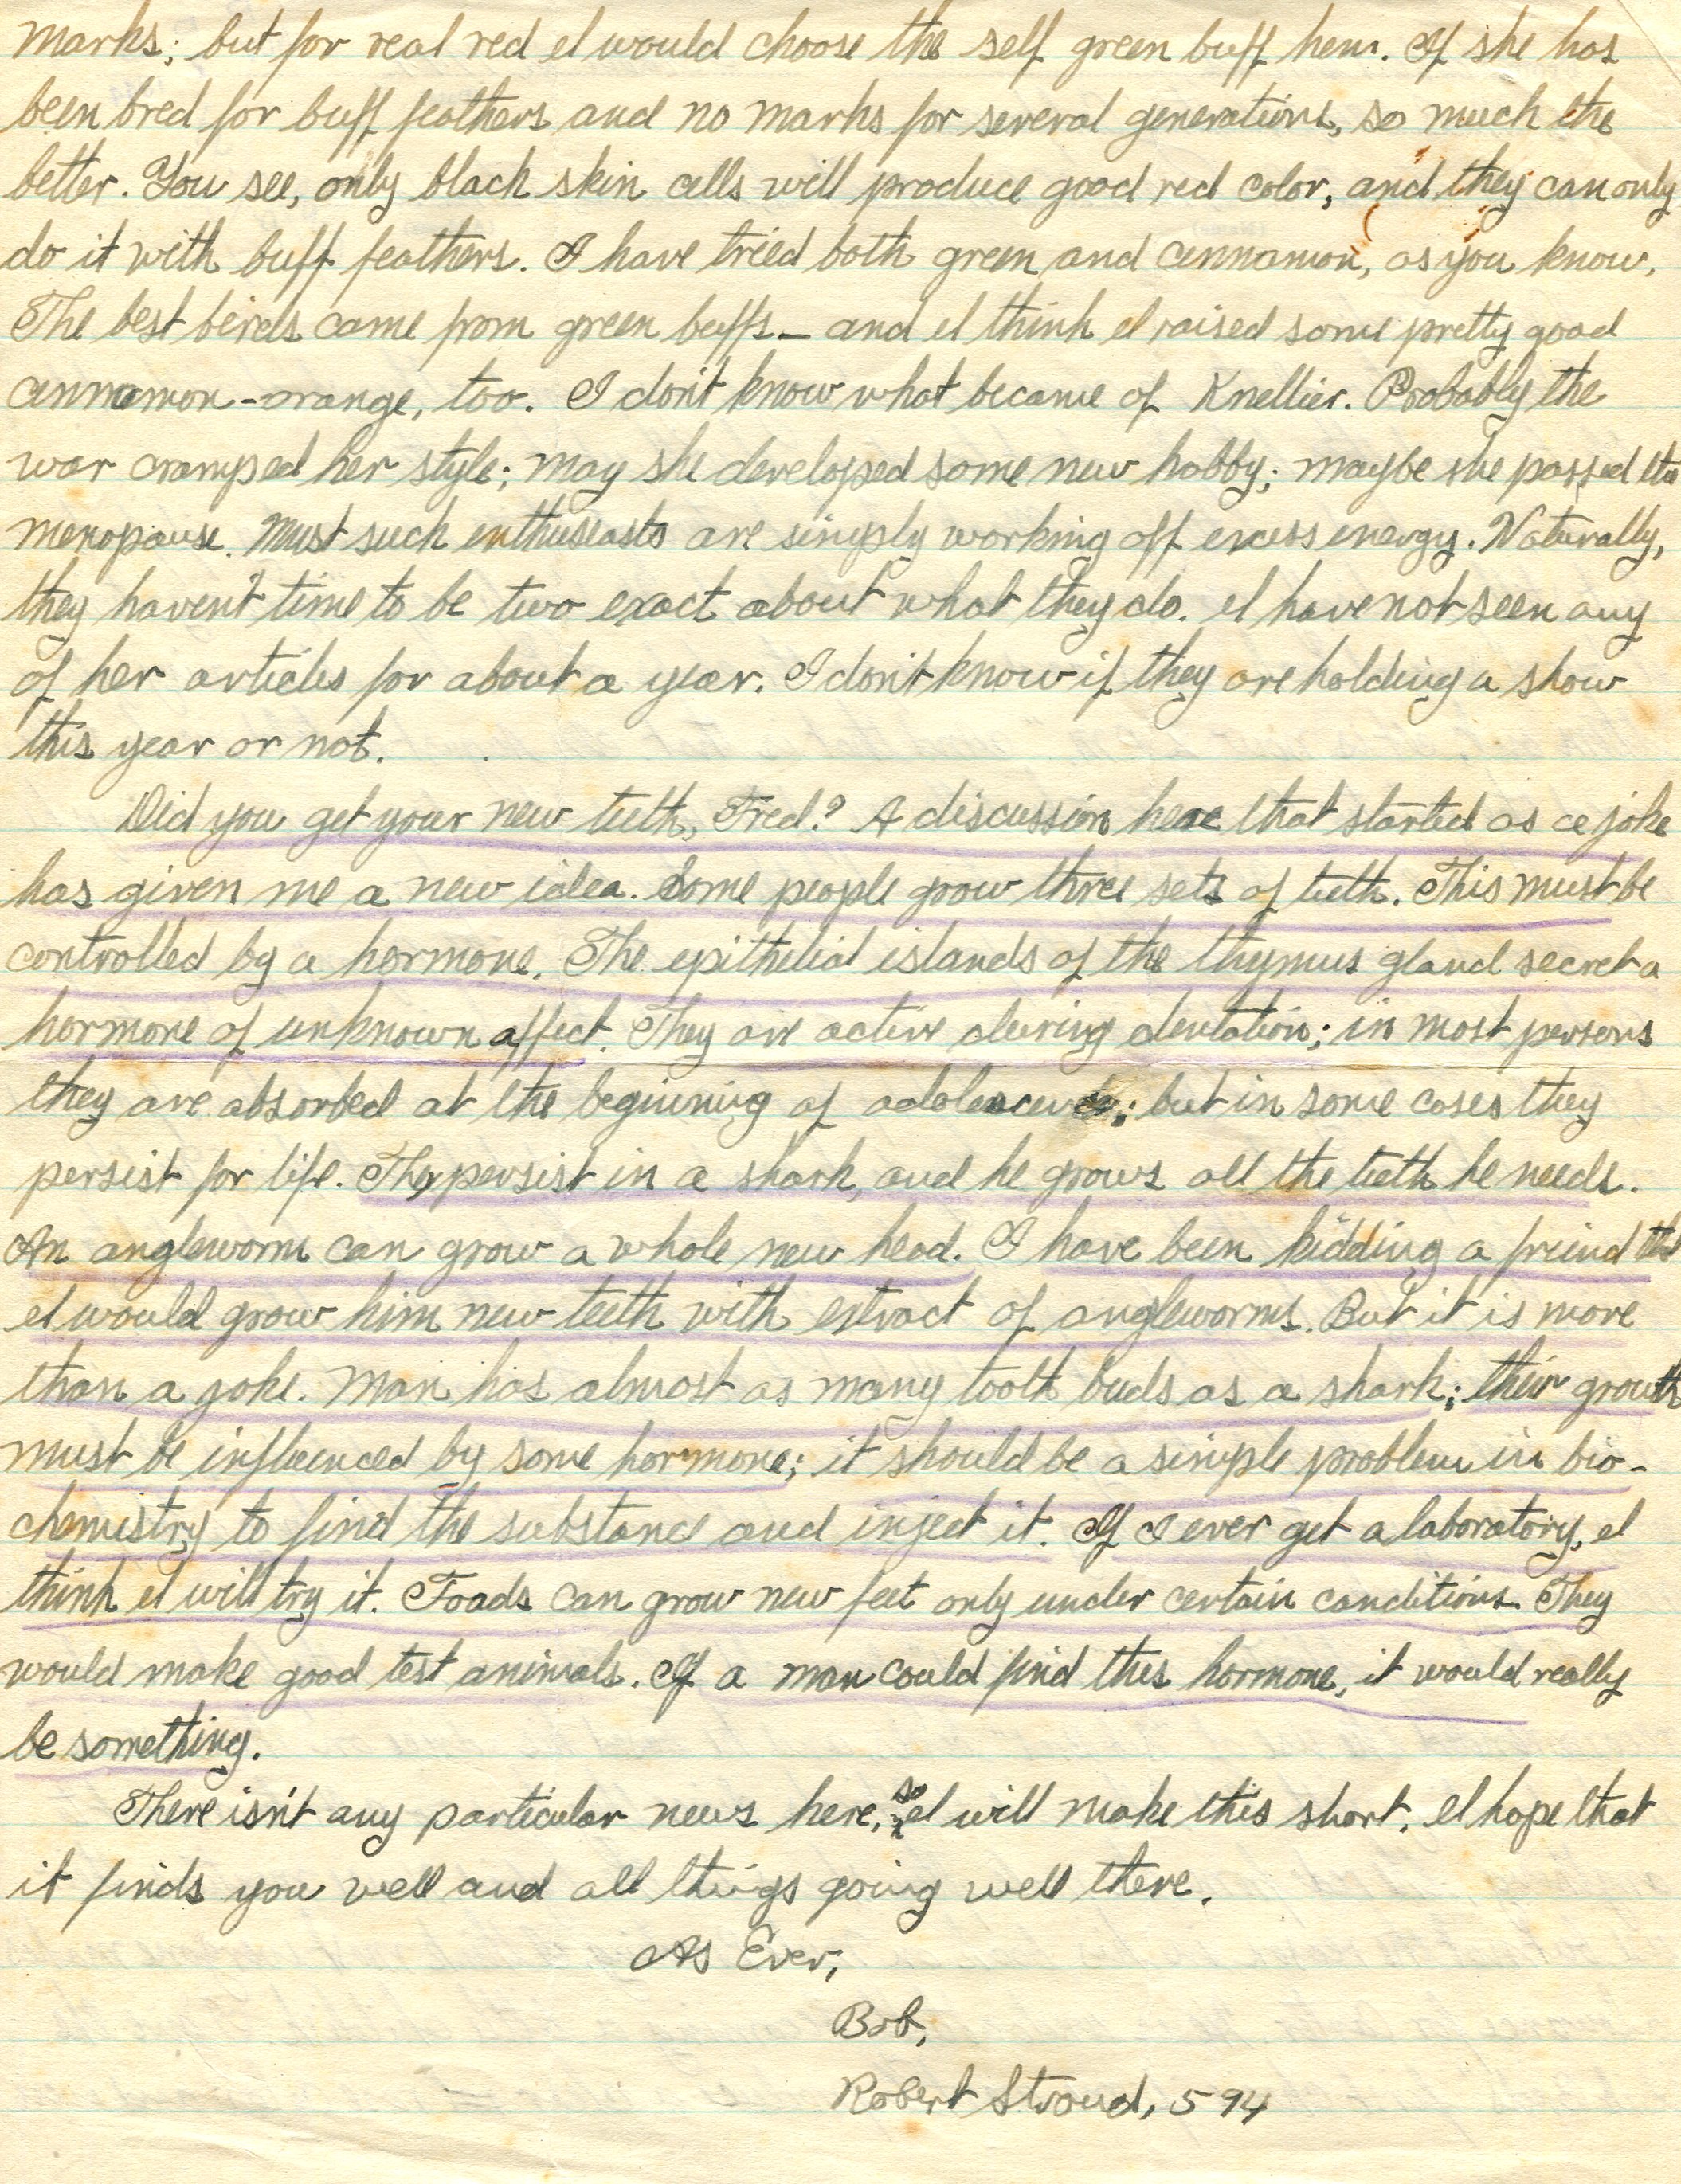 marks; but for real red I would choose the self green buff hen. If she has
been bred for buff feathers and no marks for several generations, so much the
better. You see, only black skin cells will produce good red color, and they can only
do it with buff feathers. I have tried both green and cinnamon, as you know.
The best birds came from green buffs — and I think I raised some pretty good
cinnamon-orange, too. I don't know what became of Knellier. Probably the
war cramped her style; may she developed some new hobby; maybe she passed the
menopause. Must such enthuseasts are simply working off excess energy. Naturally,
they haven't time to be two exact about what they do. I have not seen any
of her articles for about a year. I don't know if they are holding a show
this year or not.
Did you get your new teeth, Fred? A discussion here that started as a joke
has given me a new idea. Some people grow three sets of teeth. This must be
controlled by a hormone. The epithelial islands of the thymus gland secret a
hormone of unknown affect. They are active during dentation; in most persons
they are absorbed at the beginning of adolescence; but in some cases they
persist for life. They persist in a shark, and he grows all the teeth he needs.
An angleworm can grow a whole new head. I have been kidding a friend that
I would grow him new teeth with extract of angleworms. But it is more
than a joke. Man has almost as many tooth buds as a shark; their growth
must be influenced by some hormone; it should be a simple problem in bio-
chemistry to find the substance and inject it. If I ever get a laboratory, I
think I will try it. Toads can grow new feet only under certain conditions. They
would make good test animals. If a man could find this hormone, it would really
be something.
There isn't any particular news here, so I will make this short. I hope that
it finds you well and all things going well there.
As Ever,
Bob,
Robert Stroud, 594